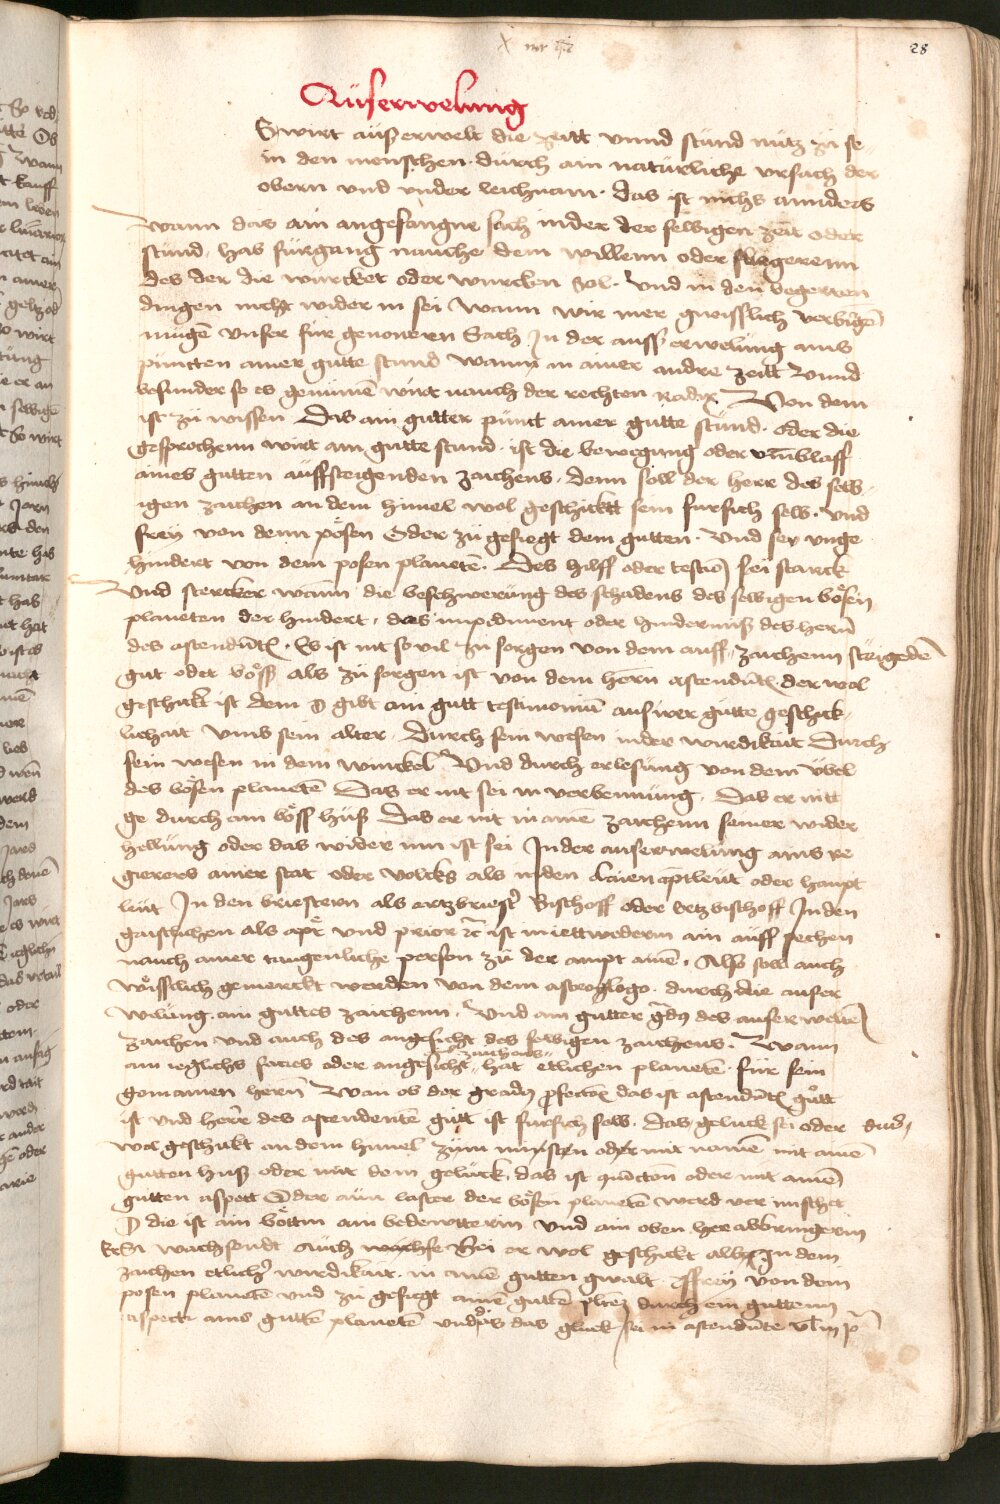 28
Auserwelung
Swirt ausserwelt die zeitt vnnd stund nutz zu se
in den menschen durch ain naturliche vrsach der
obern vnd vnder leichnam · das ist nichs annders
wann das ain angefangne sach in der der selbigen zeit oder
stund hab fürgang nauche dem willenn oder
des der die wurcket oder wurcken sol · Vnd in den begerten
dingen nicht wider in sei Wann wir mer gwisslich verbringē
mugē vnser für genomen Sach In der auss erwelung ains
puncten ainer gutte stund wann in ainer andre zeitt Vnnd
besunder so es genumē wirt nauch der rechten Radix Von dem
ist zu wissen Das ain gutter punct ainer gutte stund · oder die
gesprochenn wirt ain gutte stund · ist die bewegung oder vmblaff
aines gutten auffsteigenden zaichens · Denn soll der herr des selb
igen zaichen an dem himel wol geschicktt sein fur sich selb · Vnd
frey von denn pösen Oder zu gefiegt dem gutten · Vnd sey vnge
hindert von dem posen planetē · Des hilff oder sei starck
Vnd stercker wann die beschwerung des schadens des selbigen bösen
planeten der hindert · das inpediment oder hindernuß des hern
des ascendētis · Es ist nit so vil zu sorgen von dem auff zaichenn steigedē
gut oder böss als zu sorgen ist von dem hern ascendētis der wol
geschickt ist dem gibt ain gutt testimoniū auf wer gutte geschick
lichait vmb sein alter · Durch sein wesen in der wirdikait Durch
sein wesen in dem winckel Vnd durch erlesung von dem übel
des bösen planetē Das er nit sei in verbrennung · Das er nitt
ge durch ain böss huß Das er nit in ainē zaichenn seiner wider
hellung oder das wider im ist sei In der auserwelung ains re
gierers ainer stat oder volcks als in den laien oder haupt
leut In den briestern als ertzbriester Bischoff oder ertzbischoff In den
gaistlichen als apt vnd prior ist ain auff sechen
nauch ainer tugenliche person zu der ampt ainē · Also soll auch
weisslich gemerckt werden von dem astroglogo · durch die auser
welung · ain guttes zaichenn · Vnd ain gutter des auserweltē
Zaichen vnd auch des angesicht des selbigen zaichens · Wann
ain ieglichs facies oder angesicht zaichens hat etlichen planetē · für sein
gemainen hern Wan ob der gradus das ist ascendētis gutt
ist vnd herr des ascendentē gutt ist fursich selb · Das geluck sei oder
wol geschickt an dem himel zum minsten oder mit namē mit ainē
gutten huß oder mit dem geluck das ist oder mit ainē
gutten aspect Oder ain laster der bösen planetē werd ver mischt
die ist ain böttin ain bedewtterin vnd ain oben her abbringerin
wachsendt auch wachse Sei er wol geschickt In dem
zaichen etlicher wirdikait · in ainē gutten gwalt · frey von dem
posen planetē vnd zu gefiegt ainē guttē durch ein guttenn
aspect ains guttē planetē vnd das das gluck sei in ascendēte